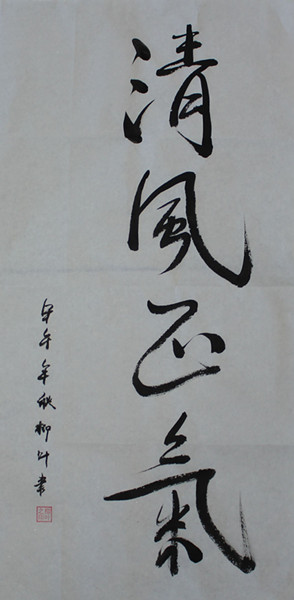 清風正氣
午年秋柳斗書